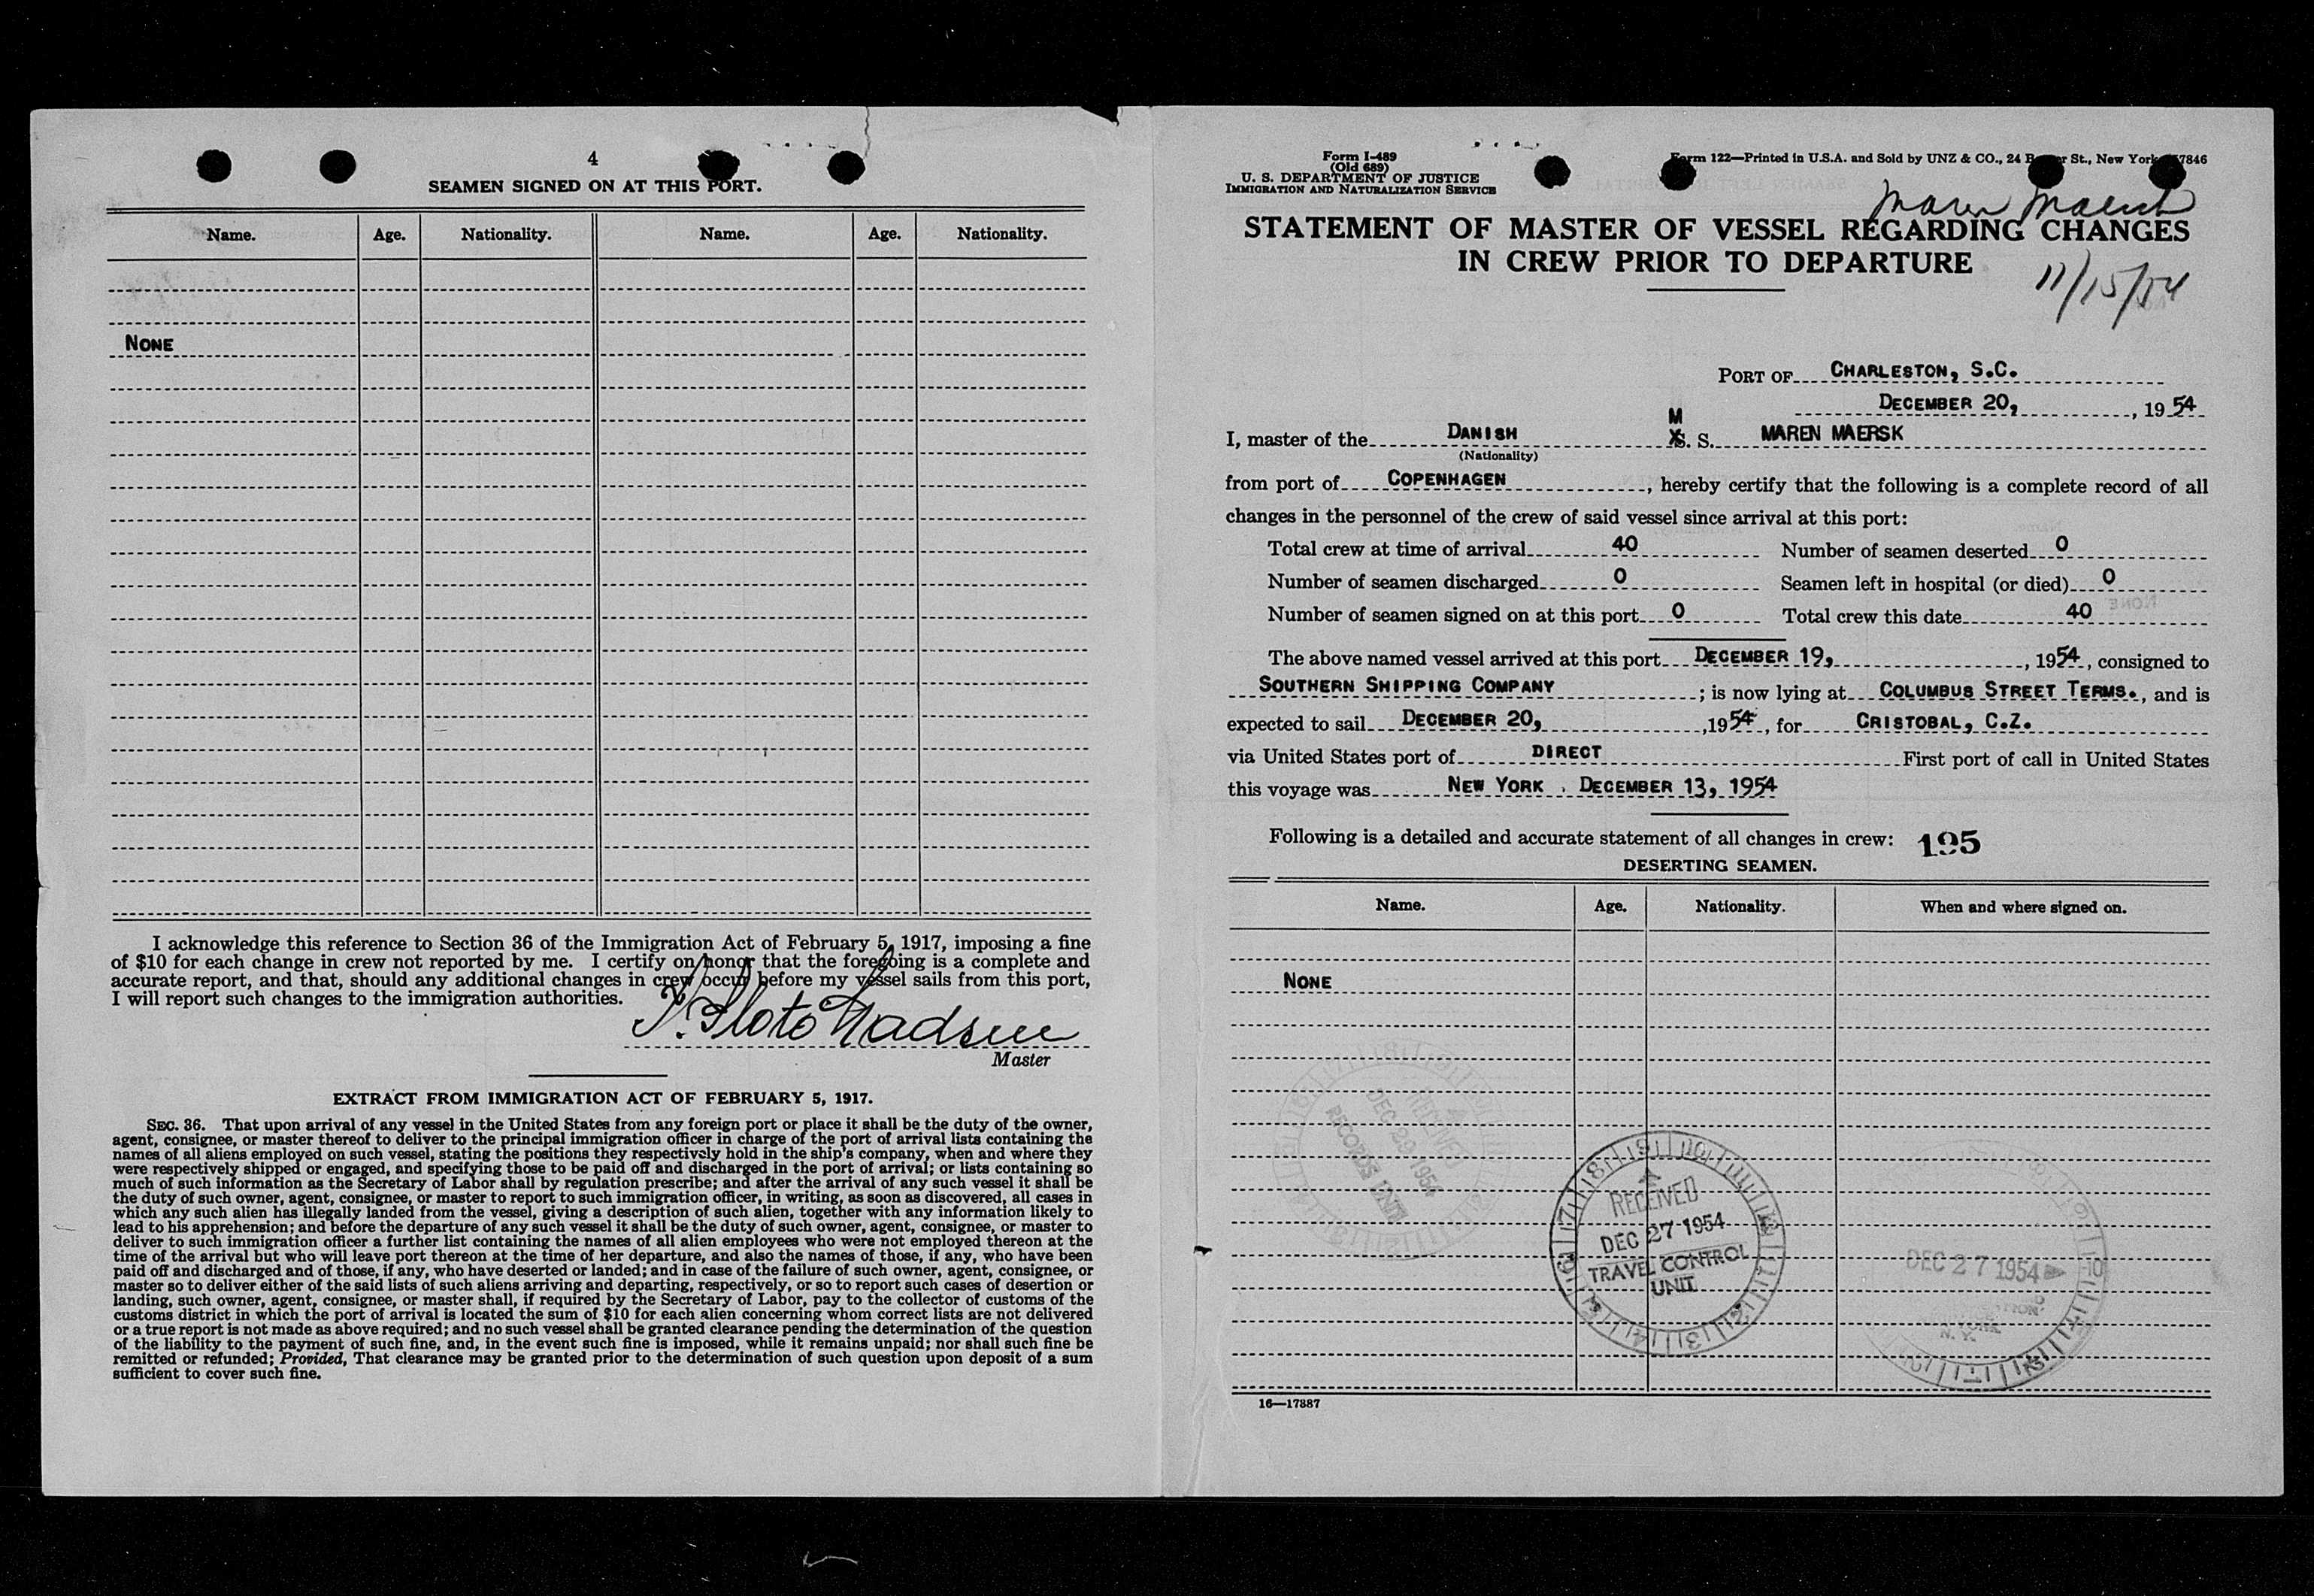 4
SEAMEN SIGNED ON AT THIS PORT.
Name. Age. Nationality. Name. Age. Nationality.
NONE
I acknowledge this reference to Section 36 of the Immigration Act of February 5, 1917, imposing a fine
of $10 for each change in crew not reported by me. I certify on honor that the foregoing is a complete and
accurate report, and that, should any additional changes in crew occur before my vessel sails from this port,
I will report such changes to the immigration authorities.
Master
EXTRACT FROM IMMIGRATION ACT OF FEBRUARY 5, 1917.
SEC. 36. That upon arrival of any vessel in the United States from any foreign port or place it shall be the duty of the owner,
agent, consignee, or master thereof to deliver to the principal immigration officer in charge of the port of arrival lists containing the
names of all aliens employed on such vessel, stating the positions they respectively hold in the ship's company, when and where they
were respectively shipped or engaged, and specifying those to be paid off and discharged in the port of arrival; or lists containing so
much of such information as the Secretary of Labor shall by regulation prescribe; and after the arrival of any such vessel it shall be
the duty of such owner, agent, consignee, or master to report to such immigration officer, in writing, as soon as discovered, all cases in
which any such alien has illegally landed from the vessel, giving a description of such alien, together with any information likely to
lead to his apprehension; and before the departure of any such vessel it shall be the duty of such owner, agent, consignee, or master to
deliver to such immigration officer a further list containing the names of all alien employees who were not employed thereon at the
time of the arrival but who will leave port thereon at the time of her departure, and also the names of those, if any, who have been
paid off and discharged and of those, if any, who have deserted or landed; and in case of the failure of such owner, agent, consignee, or
master so to deliver either of the said lists of such aliens arriving and departing, respectively, or so to report such cases of desertion or
landing, such owner, agent, consignee, or master shall, if required by the Secretary of Labor, pay to the collector of customs of the
customs district in which the port of arrival is located the sum of $10 for each alien concerning whom correct lists are not delivered
or a true report is not made as above required; and no such vessel shall be granted clearance pending the determination of the question
of the liability to the payment of such fine, and, in the event such fine is imposed, while it remains unpaid; nor shall such fine be
remitted or refunded; Provided, That clearance may be granted prior to the determination of such question upon deposit of a sum
sufficient to cover such fine.
Form I-489
(Old 689)
U. S. DEPARTMENT OF JUSTICE
IMMIGRATION AND NATURALIZATION SERVICE
Form 122—Printed in U.S.A. and Sold by UNZ & CO., 24 St., New York 7846
Maren Maersk
STATEMENT OF MASTER OF VESSEL REGARDING CHANGES
IN CREW PRIOR TO DEPARTURE
11/15/54
PORT OF CHARLESTON, S.C.
DECEMBER 20, , 19 54
I, master of the DANISH M S. S. MAREN MAERSK
(Nationality)
from port of COPENHAGEN , hereby certify that the following is a complete record of all
changes in the personnel of the crew of said vessel since arrival at this port:
Total crew at time of arrival 40 Number of seamen deserted 0
Number of seamen discharged 0 Seamen left in hospital (or died) 0
Number of seamen signed on at this port 0 Total crew this date 40
The above named vessel arrived at this port DECEMBER 19, , 1954, consigned to
SOUTHERN SHIPPING COMPANY ; is now lying at COLUMBUS STREET TERMS., and is
expected to sail DECEMBER 20, ,1954, for CRISTOBAL, C.Z.
via United States port of DIRECT First port of call in United States
this voyage was NEW YORK . DECEMBER 13, 1954
Following is a detailed and accurate statement of all changes in crew: 195
DESERTING SEAMEN.
Name. Age. Nationality. When and where signed on.
NONE
RECEIVED
DEC 23 1954
RECORDS UNIT
RECEIVED
DEC 27 1954
TRAVEL CONTROL
UNIT
DEC 27 1954
N. Y.
16—17387